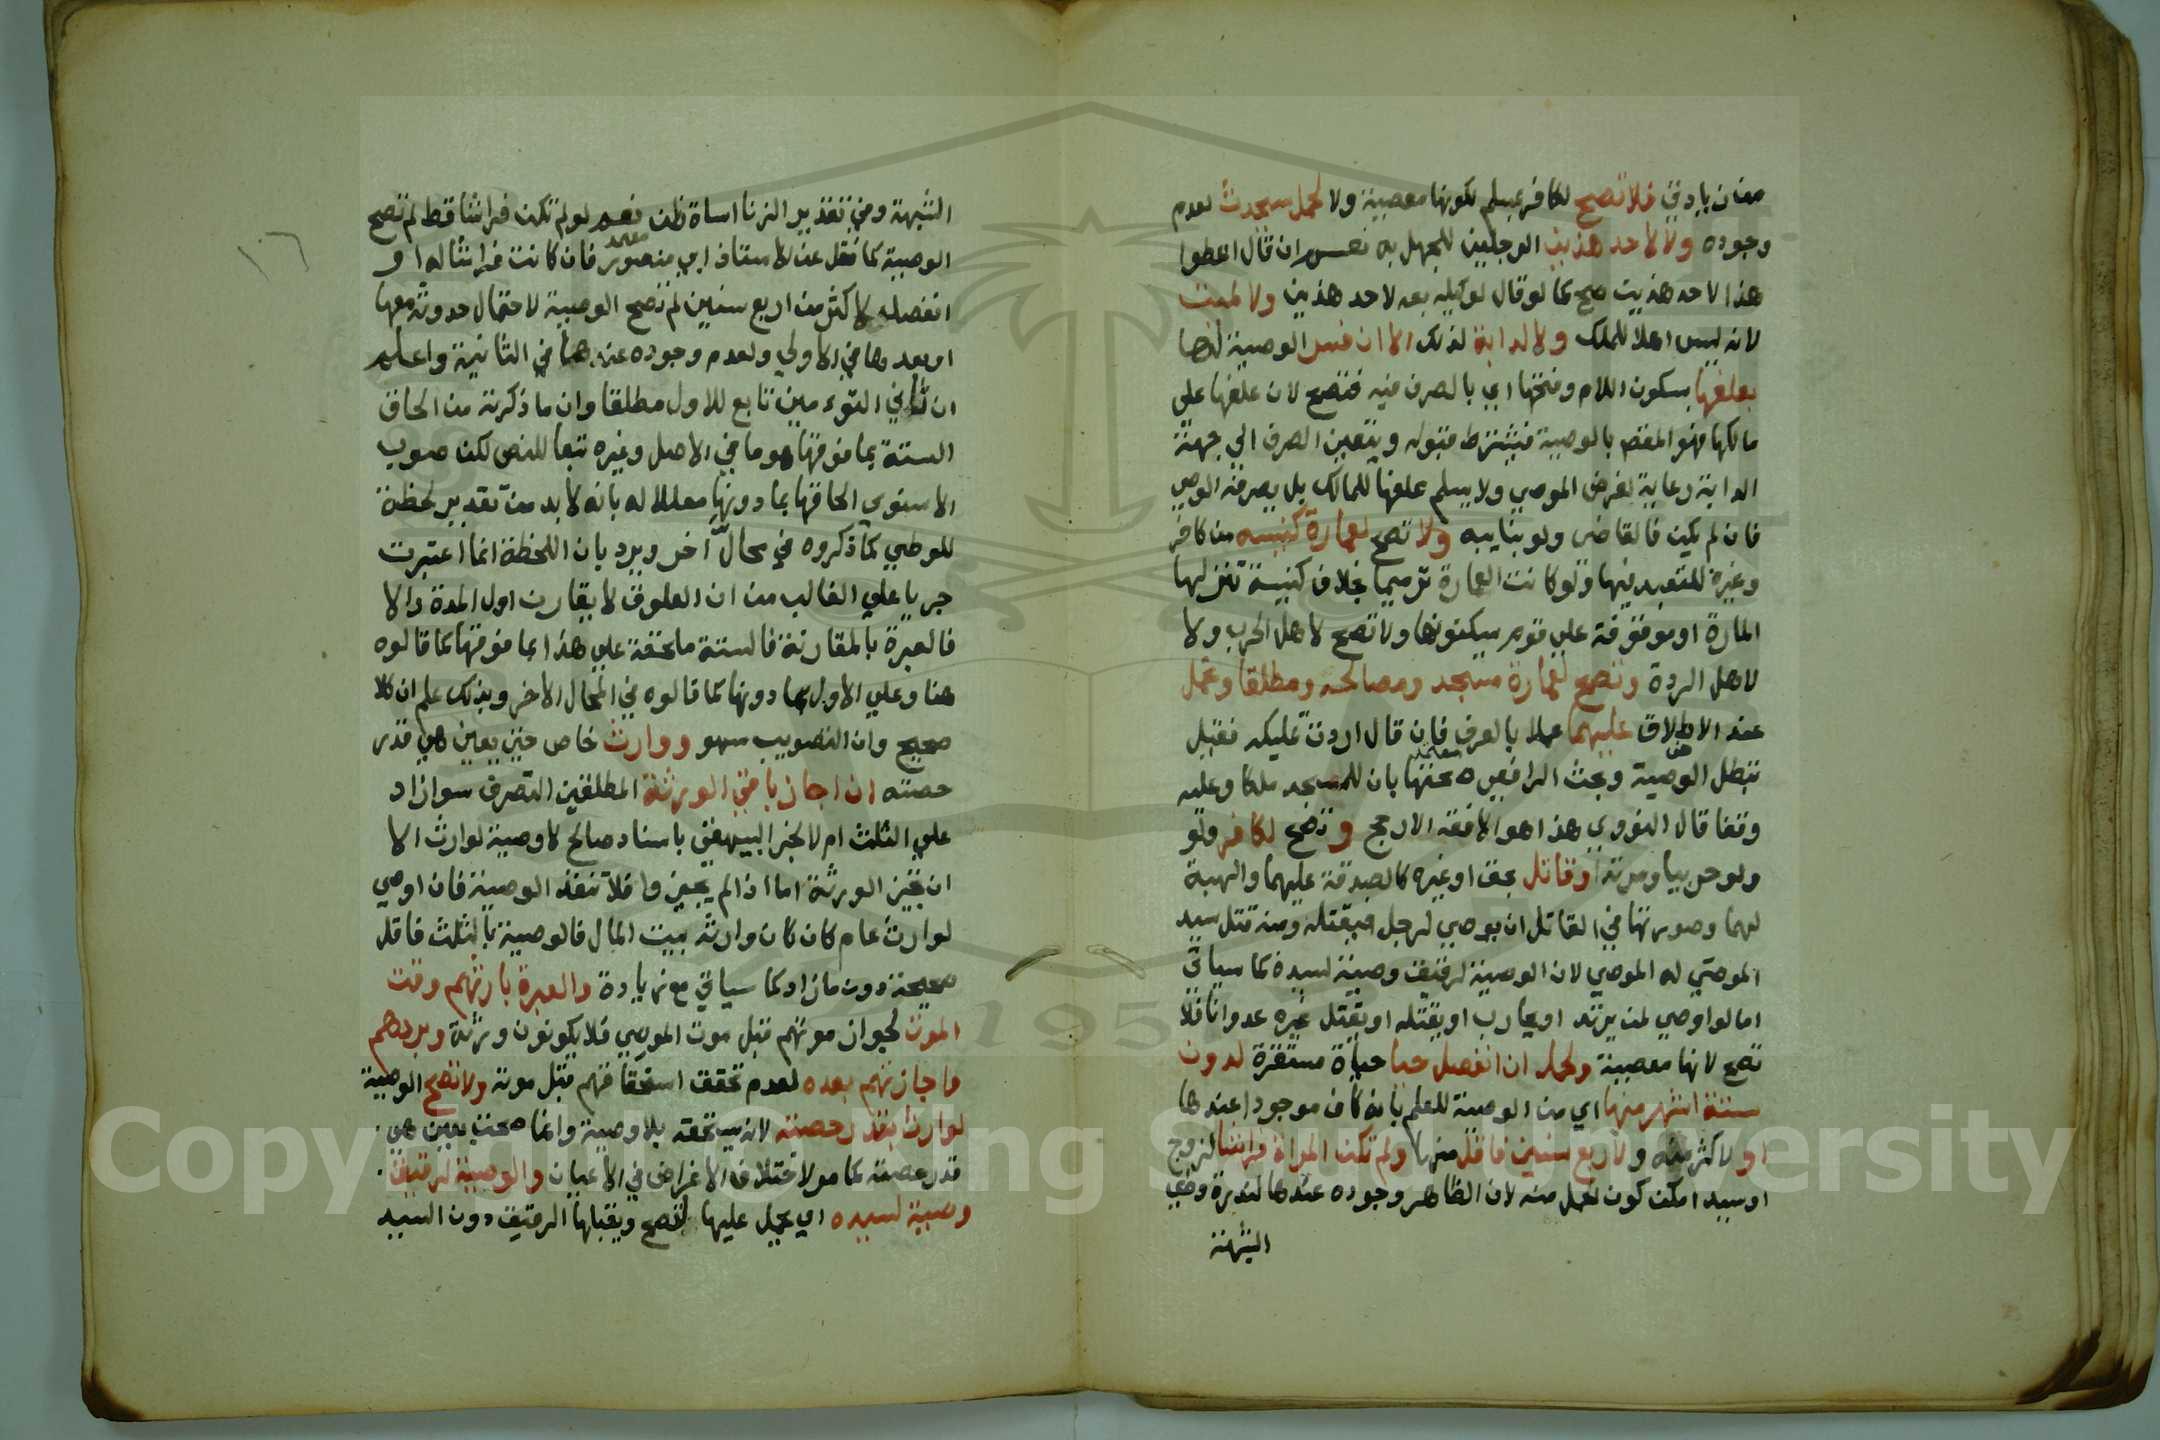 معان يادني فلا تصح لكافر بمسلم لكونها معصية ولا لحمل سيحدث لعدم
وجوده ولا لاحد هذين الرجلين للجهل به نعم ان قال اعطوا
هذا لاحد هذين صح كما لو قال لوكيله بعه لاحد هذين ولا لميت
لانه ليس اهلا للملك ولا لدابة لذلك الا ان فسر الوصية لها
بعلفها بسكون اللام وفتحها اي بالصرف فيه فتصح لان علفها على
مالكها فهو المقصود بالوصية فيشترط قبوله ويتعين الصرف الي جهة
الدابة رعاية لغرض الموصي ولا يسلم علفها للمالك بل يصرفه الوصي
فان لم يكن فالقاضى ولو بنايبه ولا تصح لعمارة كنيسه من كافر
وغيره للتعبد فيها ولو كانت العمارة ترميما بخلاف كنيسة تنزلها
المارة او موقوفة علي قوم يسكنونها ولا تصح لاهل الحرب ولا
لاهل الردة وتصح لعمارة مسجد ومصالحه ومطلقا وتحمل
عند الاطلاق عليهما عملا بالعرف فان قال اردت تمليكه فقيل
تبطل الوصية وبحث الرافعي صحتها بان للمسجد ملكا وعليه
وقفا قال النووي هذا هو الافقه الارجح و تصح لكافر ولو
ولو حربيا ومرتدا وقاتل بحق او غيره كالصدقة عليهما والهبة
لهما وصورتها في القاتل ان يوصي لرجل فيقتله ومنه قتل سيد
الموصي له الموصي لان الوصية لرقيق وصية لسيده كما سياتي
اما لو اوصي لمن يرتد او يحارب او يقتله او يقتل غيره عدوانا فلا
تصح لانها معصية ولحمل ان انفصل حيا حياة مستقرة لدون
ستة اشهر منها اي من الوصية للعلم بانه كان موجودا عندها
او لاكثر منه ولاربع سنين فاقل منها ولم تكن المراة فراشا لزوج
او سيد امكن كون الحمل منه لان الظاهر وجوده عندها لندرة وطي
الشبهة
الشبهة وفي تقدير الزنا اساة ظن نعم لو لم تكن فراشا قط لم تصح
الوصية كما نقل عن الاستاذ ابي منصور فان كانت فراشا له او
انفصل لاكثر من اربع سنين لم تصح الوصية لاحتمال حدوثه معها
او بعدها في الاولي ولعدم وجوده عندها في الثانية واعلم
ان ثاني التوءمين تابع للاول مطلقا وان ما ذكرته من الحاق
الستة بما فوقها هو ما في الاصل وغيره تبعا للنص لكن صوب
الاسنوي الحاقها بما دونها معللا له بانه لا بد من تقدير لحظة
للوطي كما ذكروه في محال اخر ويرد بان اللحظة انما اعتبرت
جريا علي الغالب من ان العلوق لا يقارن اول المدة والا
فالعبرة بالمقارنة فالستة ملحقة علي هذا بما فوقها كما قالوه
هنا وعلي الاول بما دونها كما قالوه في المحال الاخر وبذلك علم ان كلا
صحيح وان التصويب سهو ووارث خاص حتي بعين هي قدر
حصته ان اجاز باقي الورثة المطلقين التصرف سوا زاد
علي الثلث ام لا لخبر البيهقي باسناد صالح لا وصية لوارث الا
ان تجيز الورثة اما اذا لم يجيزوا فلا تنفذ الوصية فان اوصي
لوارث عام كان كان وارثه بيت المال فالوصية بالثلث فاقل
صحيحة دون ما زاد كما سياتي مع زيادة والعبرة بارثهم وقت
الموت لجواز موتهم قبل موت الموصي فلا يكونون ورثة وبردهم
واجازتهم بعده لعدم تحقق استحقاقهم قبل موته ولا تصح الوصية
لوارث بقدر حصته لانه يستحقه بلا وصية وانما صحت بعين هي
قدر حصته كما مر لاختلاف الاغراض في الاعيان والوصية لرقيق
وصية لسيده اي تحمل عليها لتصح ويقبلها الرقيق دون السيد